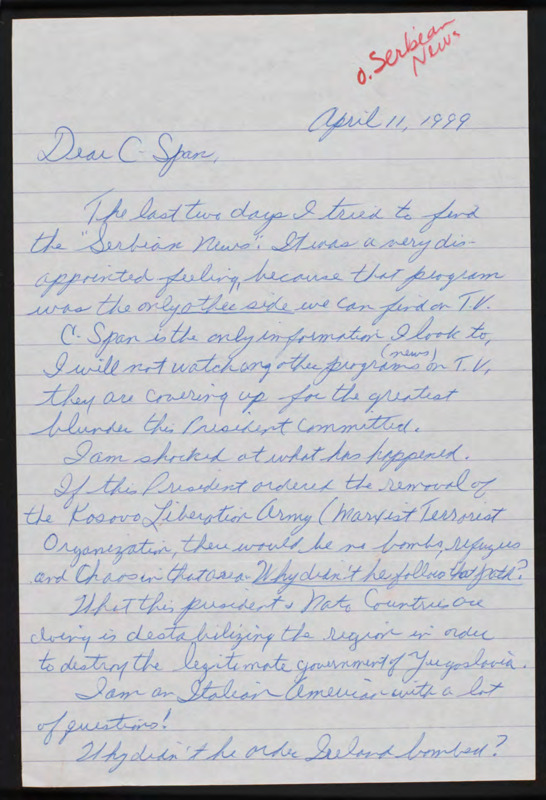 o. Serbian
News
April 11, 1999
Dear C-Span,
The last two days I tried to find
the "Serbian News". It was a very dis-
appointed feeling, because that program
was the only other side we can find on T.V.
C-Span is the only information I look to,
I will not watch any other programs (news) on T.V,
they are covering up for the greatest
blunder this President committed.
I am shocked at what has happened.
If this President ordered the removal of
the Kosovo Liberation Army (Marxist Terrorist
Organization, there would be no bombs, refugees
and Chaos in that area. Why didn't he follow that path?
What this president & Nato Countries are
doing is destabilizing the region in order
to destroy the legitimate government of Yugoslavia.
I am an Italian American with a lot
of questions!
Why didn't he order Ireland bombed?